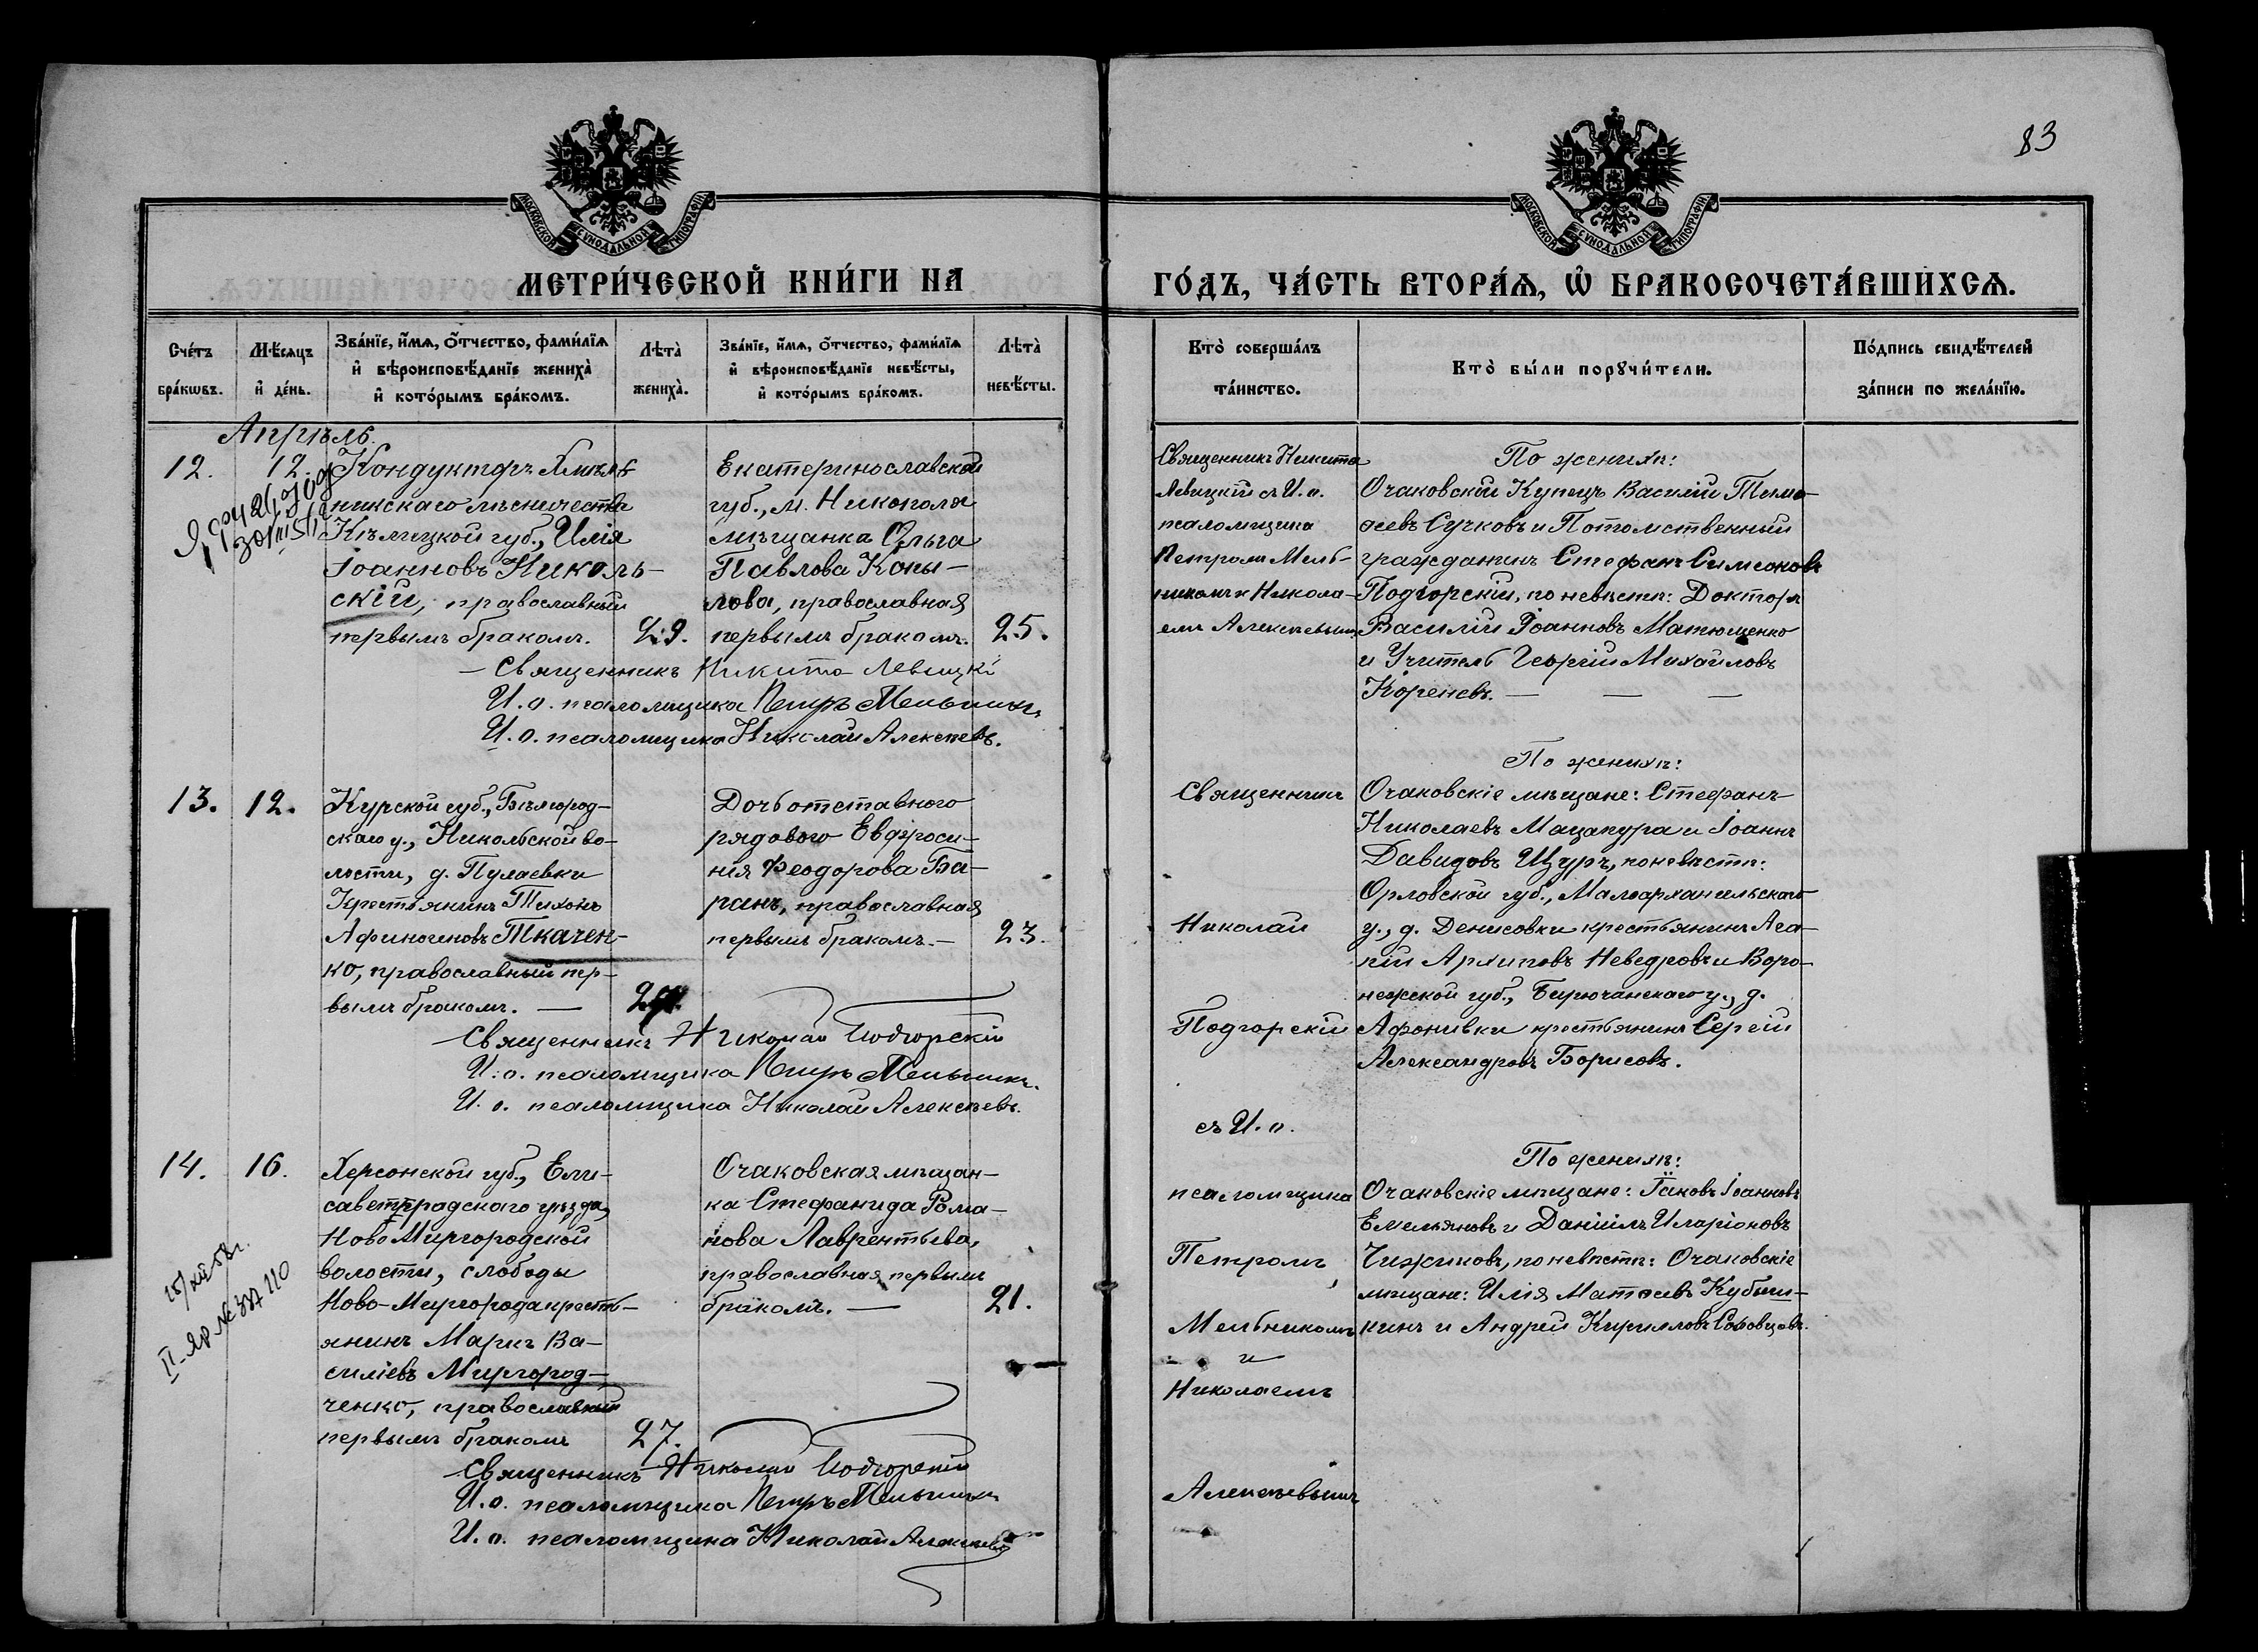 83
МОСКОВСКОЙ СѴНОДАЛЬНОЙ ТИПОГРАФІИ
МОСКОВСКОЙ СѴНОДАЛЬНОЙ ТИПОГРАФІИ
МЕТРИ́ЧЕСКОЙ КНИ́ГИ НА
ГО́ДЪ, ЧА́СТЬ ВТОРА́Ѧ, Ѡ҆ БРАКОСОЧЕТА́ВШИХСѦ.
Сче́тъ
бра́кѡвъ.
Мѣ́сѧцъ
и҆ де́нь.
Зва́нїе, и҆́мѧ, о҆́тчество, фами́лїѧ
и҆ вѣроисповѣ́данїе жениха̀
и҆ кото́рымъ бра́комъ.
Лѣта̀
жениха̀.
Зва́нїе, и҆́мѧ, о҆́тчество, фами́лїѧ
и҆ вѣроисповѣ́данїе невѣ́сты,
и҆ кото́рымъ бра́комъ.
Лѣта̀
невѣ́сты.
Кто̀ соверша́лъ
та́инство.
Кто̀ бы́ли порꙋчи́тели.
По́дпись свидѣ́телей
за́писи по жела́нїю.
Апрѣль.
12.
12.
Кондукторъ Хмѣль-
никскаго лѣсничества
Кѣлецкой губ., Илія
Іоанновъ Николь-
скій, православный
первымъ бракомъ.
29.
Екатеринославской
губ., м. Никополя
мѣщанка Ольга
Павлова Копы-
лова, православная
первымъ бракомъ.
25.
Священникъ Никита
Левицкій съ И. о.
псаломщика
Петромъ Мель-
никомъ и Никола-
емъ Алексѣевымъ
По женихѣ:
Очаковскій Купецъ Василій Тимо-
ѳеевъ Сучковъ и Потомственный
гражданинъ Стефанъ Симеоновъ
Подгорскій, по невѣстѣ: Докторъ
Василій Іоанновъ Матюшенко
и Учитель Георгій Михайловъ
Кореневъ.
Священникъ Никита Левицкій
И. о. псаломщика Петръ Мельникъ
И. о. псаломщика Николай Алексѣевъ.
13.
12.
Курской губ., Бѣлгород-
скаго у., Никольской во-
лости, д. Пулаевки
Крестьянинъ Тихонъ
Афиногеновъ Ткачен-
ко, православный пер-
вымъ бракомъ.
Дочь отставного
рядового Евфроси-
нія Феодорова Ба-
ранъ, православная
первымъ бракомъ.
23.
Священникъ
Николай
Подгорскій
съ И. о.
псаломщика
Петромъ
Мельникомъ
и
Николаемъ
Алексѣевымъ
По женихѣ:
Очаковскіе мѣщане: Стефанъ
Николаевъ Мацапура и Іоаннъ
Давидовъ Щуръ, по невѣстѣ:
Орловской губ., Малоархангельскаго
у., д. Денисовки крестьянинъ Ага-
пій Архиповъ Неведровъ и Воро-
нежской губ., Бирючанскаго у., д.
Афонивки крестьянинъ Сергій
Александровъ Борисовъ.
Священникъ Николай Подгорскій
И. о. псаломщика Петръ Мельникъ.
И. о. псаломщика Николай Алексѣевъ.
14.
16.
Херсонской губ., Ели-
саветградскаго уѣзда,
Ново Миргородской
волости, слободы
Ново-Миргорода кресть-
янинъ Маркъ Ва-
силіевъ Миргород-
ченко, православный
первымъ бракомъ
27.
Очаковская мѣщан-
ка Стефанида Рома-
нова Лаврентьева,
православная первымъ
бракомъ.
21.
По женихѣ:
Очаковскіе мѣщане: Іаковъ Іоанновъ
Емельяновъ и Даніилъ Иларіоновъ
Чижиковъ, по невѣстѣ: Очаковскіе
мѣщане: Илія Матѳеевъ Кубыш-
кинъ и Андрей Кирилловъ
Священникъ Николай Подгорскій
И. о. псаломщика Петръ Мельникъ
И. о. псаломщика Николай Алексѣевъ